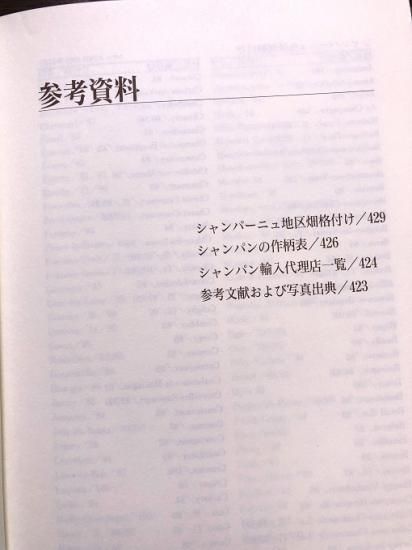 参考資料
シャンパーニュ地区畑格付け／429
シャンパンの作柄表／426
シャンパン輸入代理店一覧／424
参考文献および写真出典／423